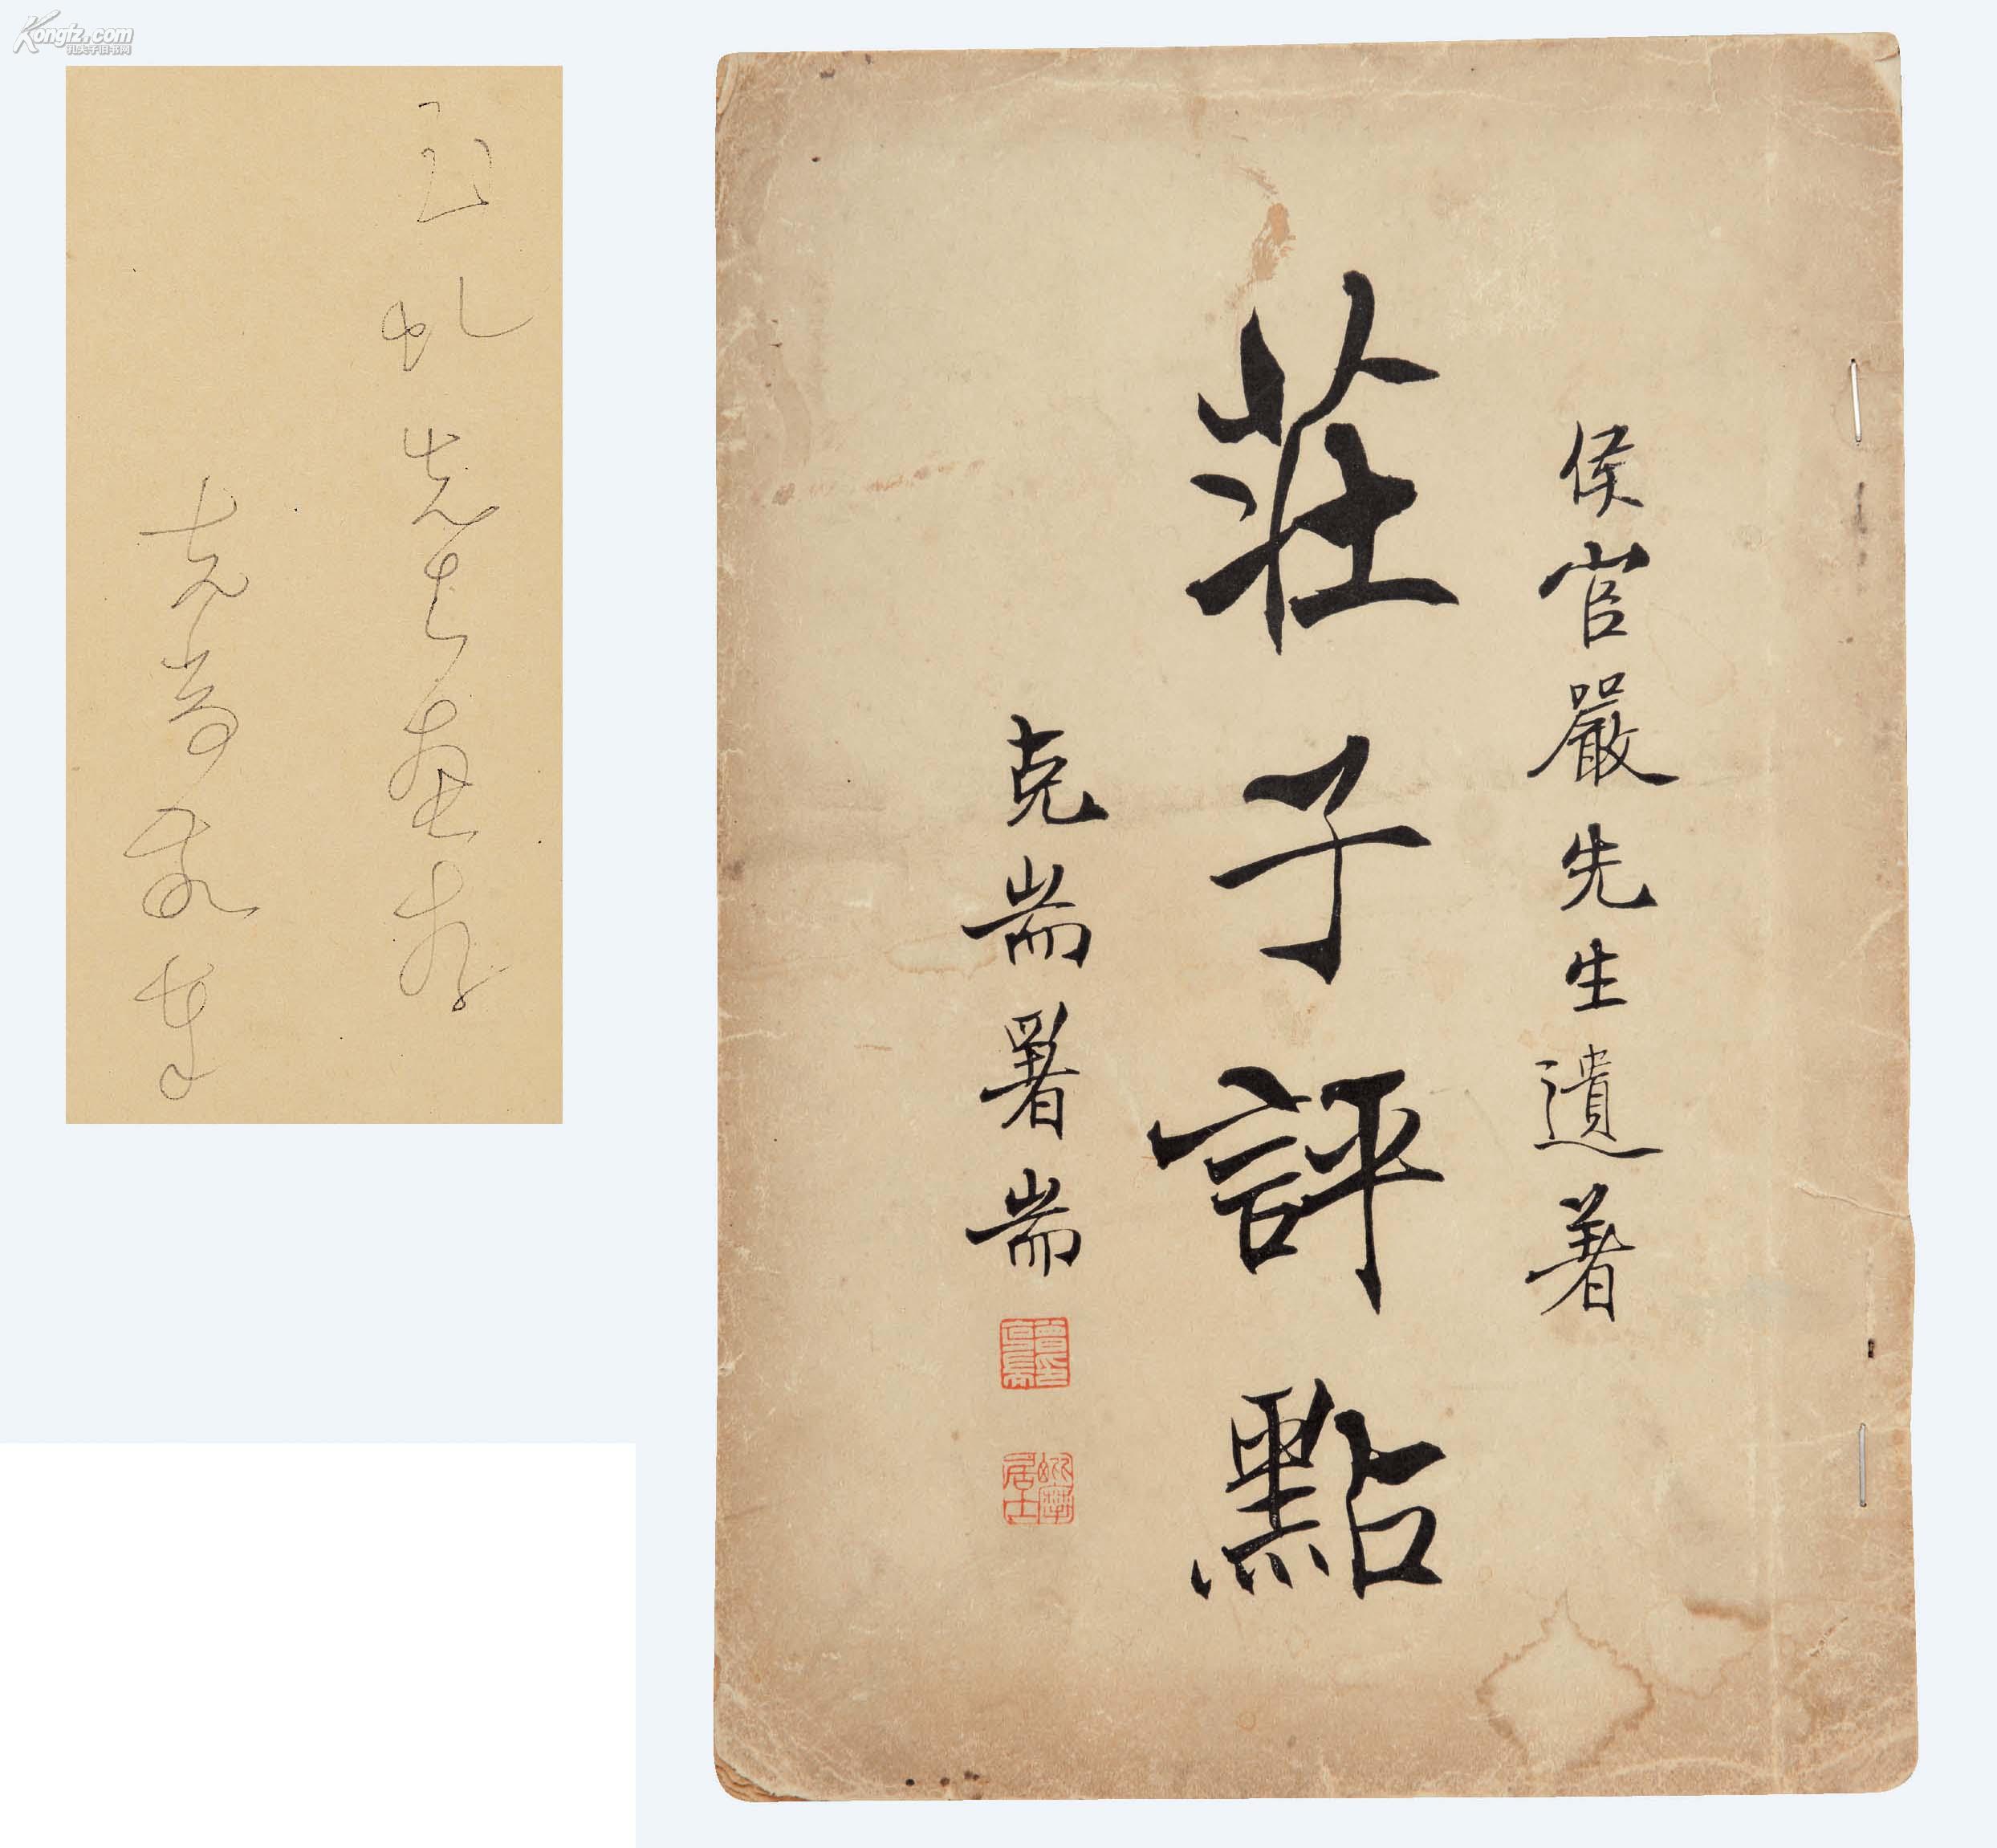 Kongfz.com
孔夫子旧书网
虬先生惠存
克耑敬
侯官嚴先生遺著
莊子評點
克耑署耑
曾印克耑
居士